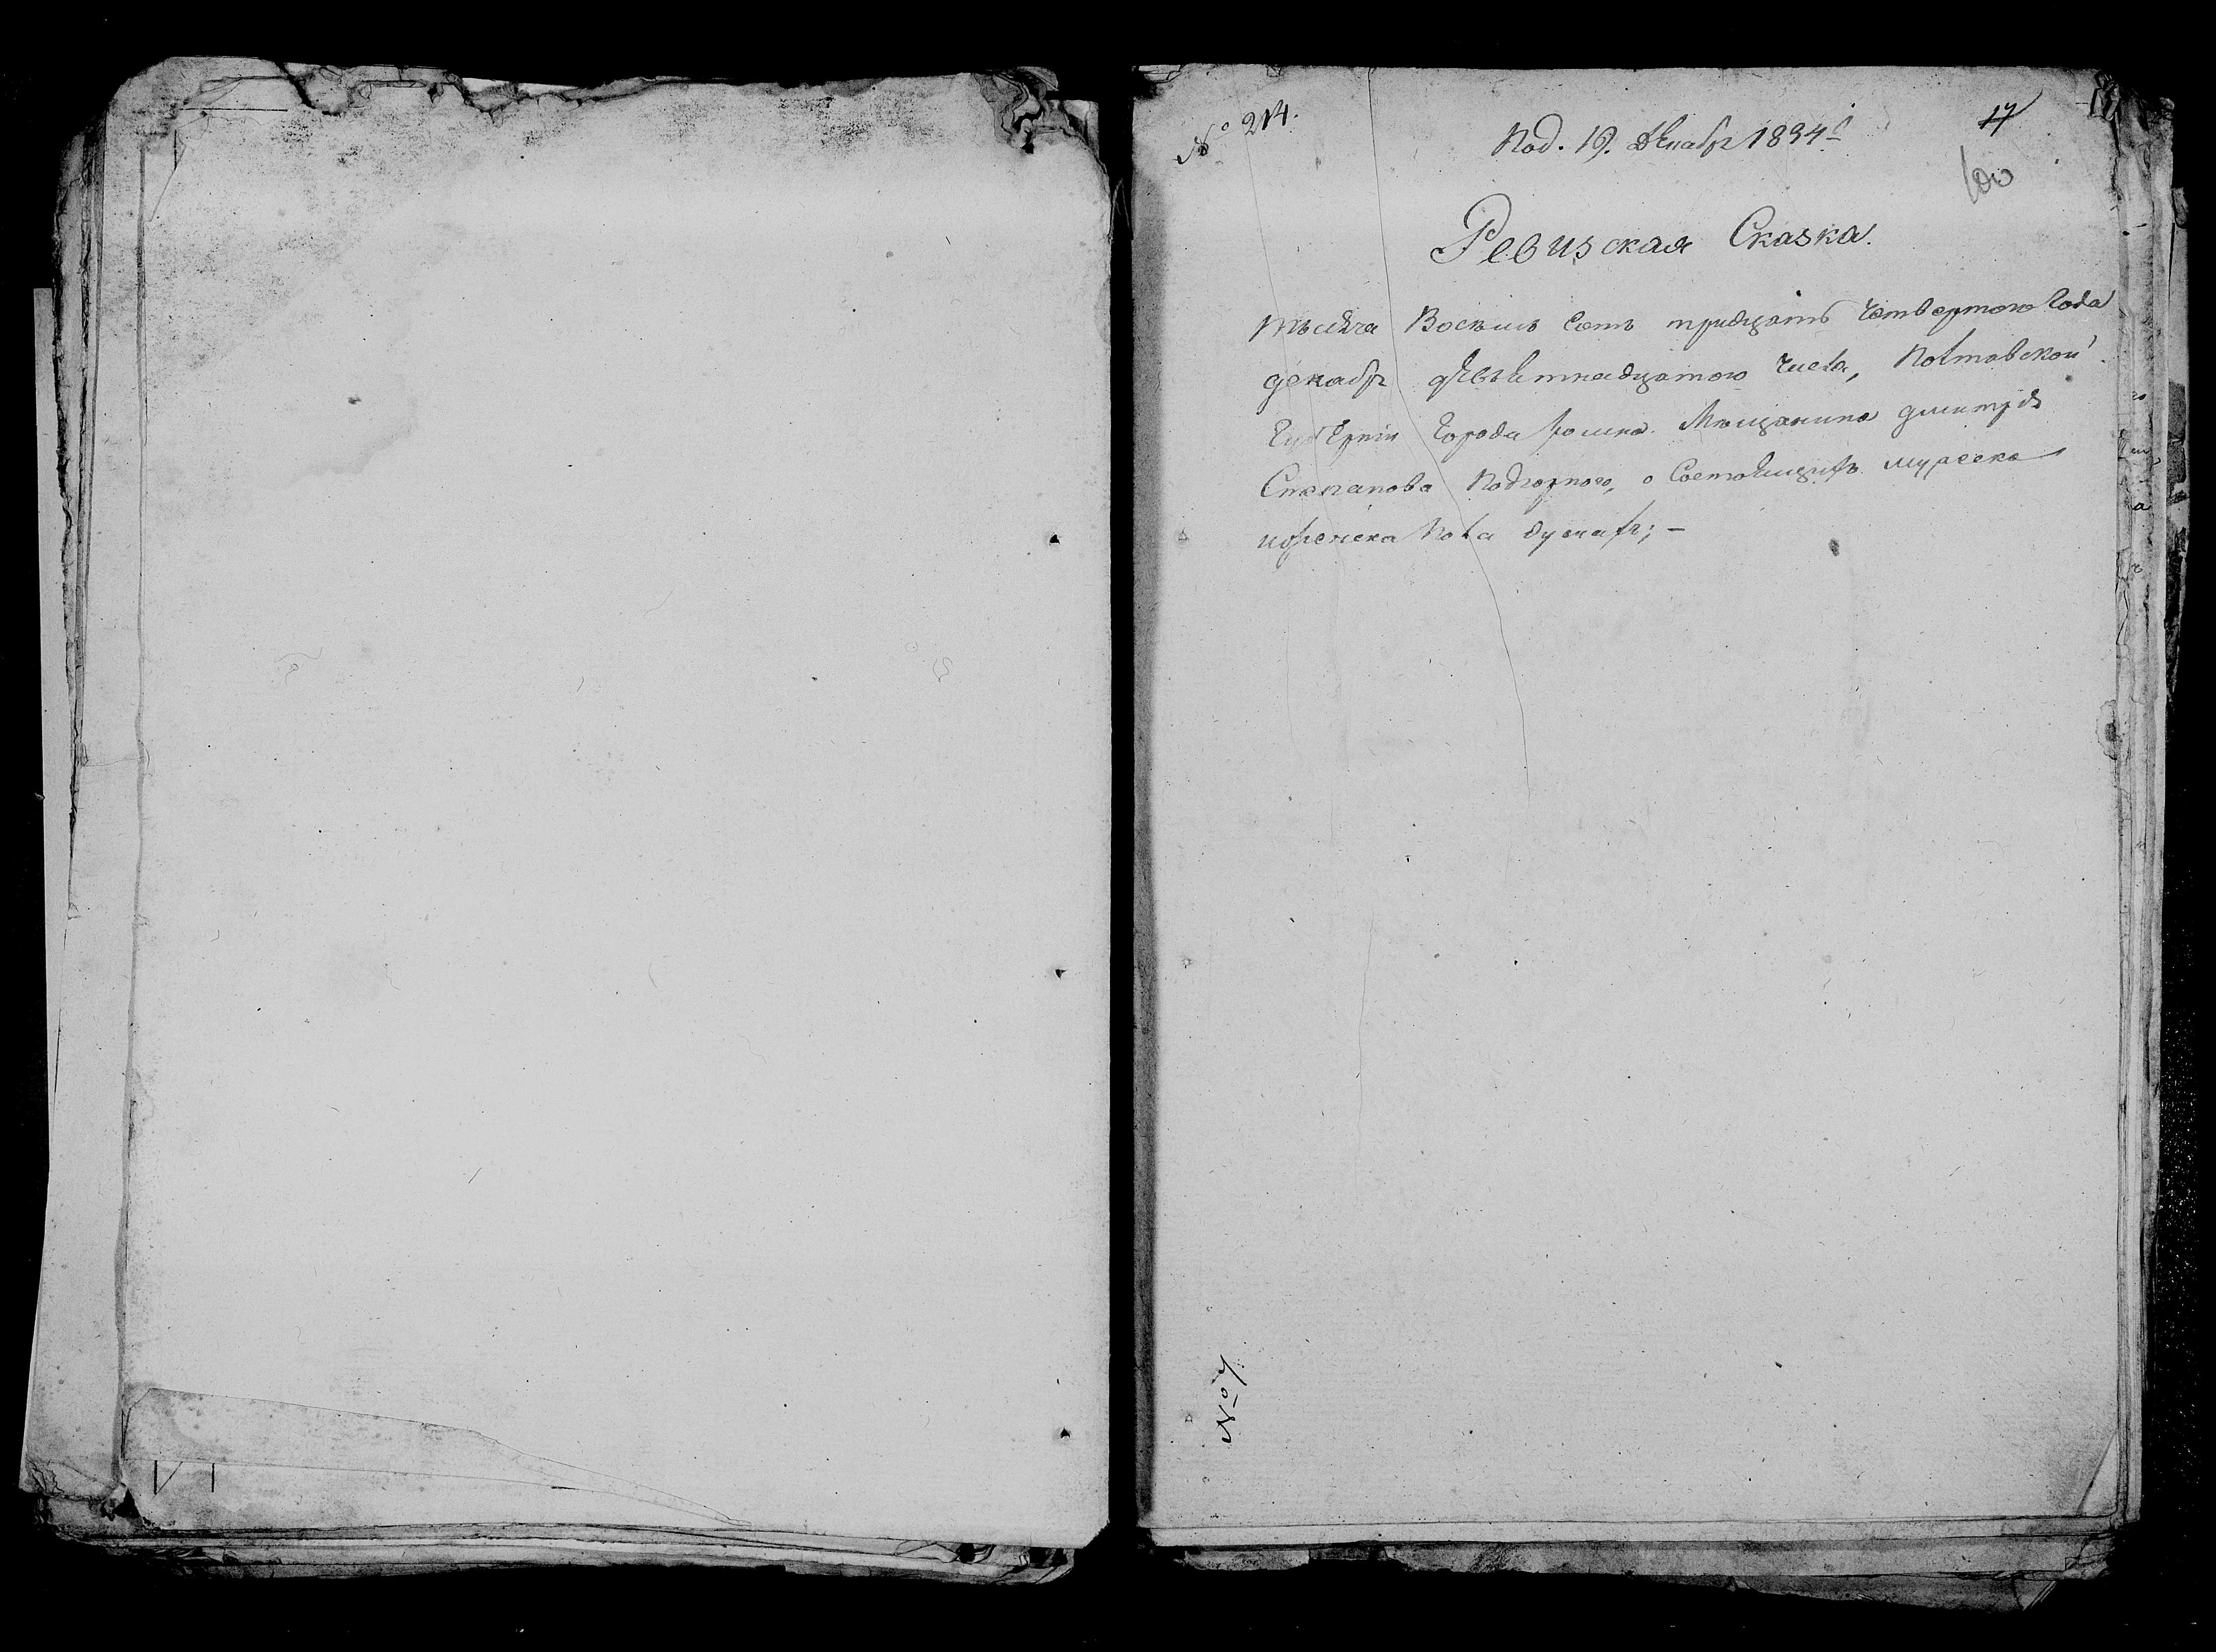 № 214.
Под. 19. декабр 1834г
17
100
Ревизская Сказка.
тысяча Восемь Сотъ тридцать Четвертого Года
декабр девьятнадцатого Числа, Полтавской
Губернии Города Мѣщанина дмитрия
Степанова Подгорного, о Состоящихъ мужеска
иженска Пола душахъ; —
№ 7